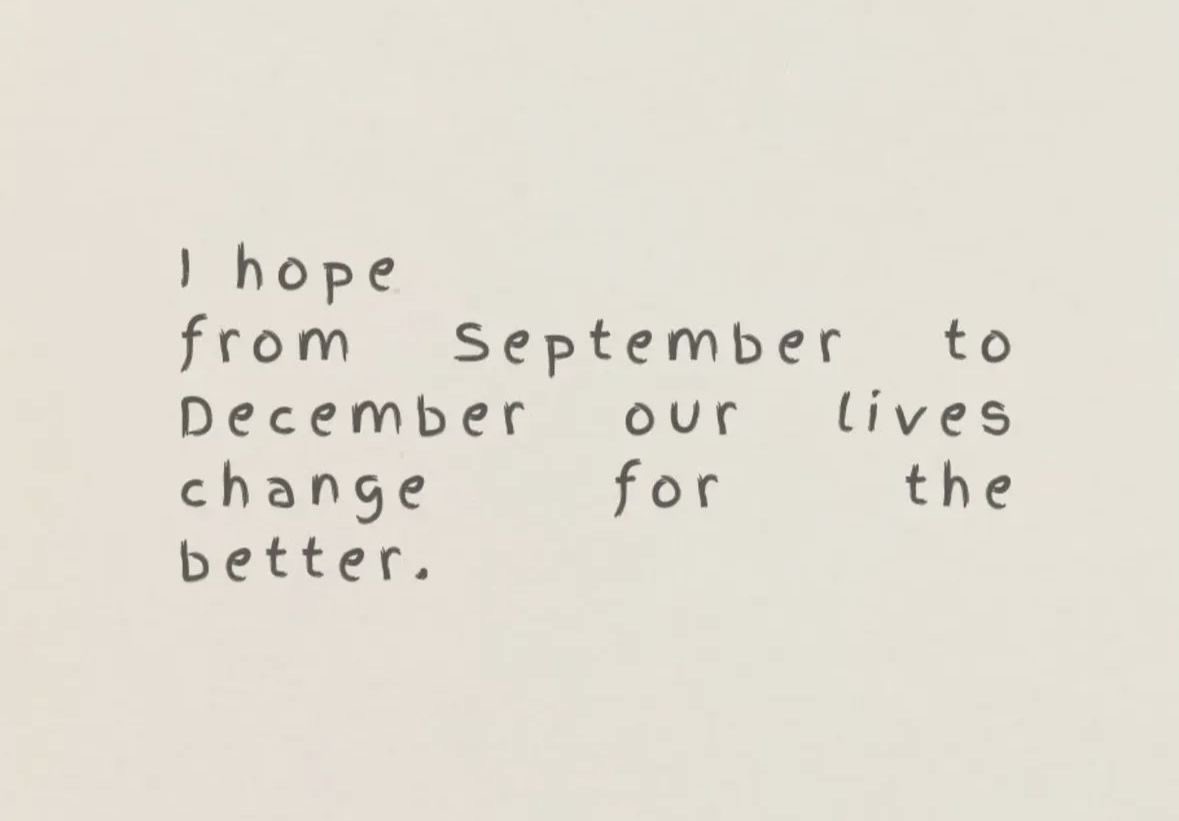 I hope
from September to
December our lives
change for the
better.